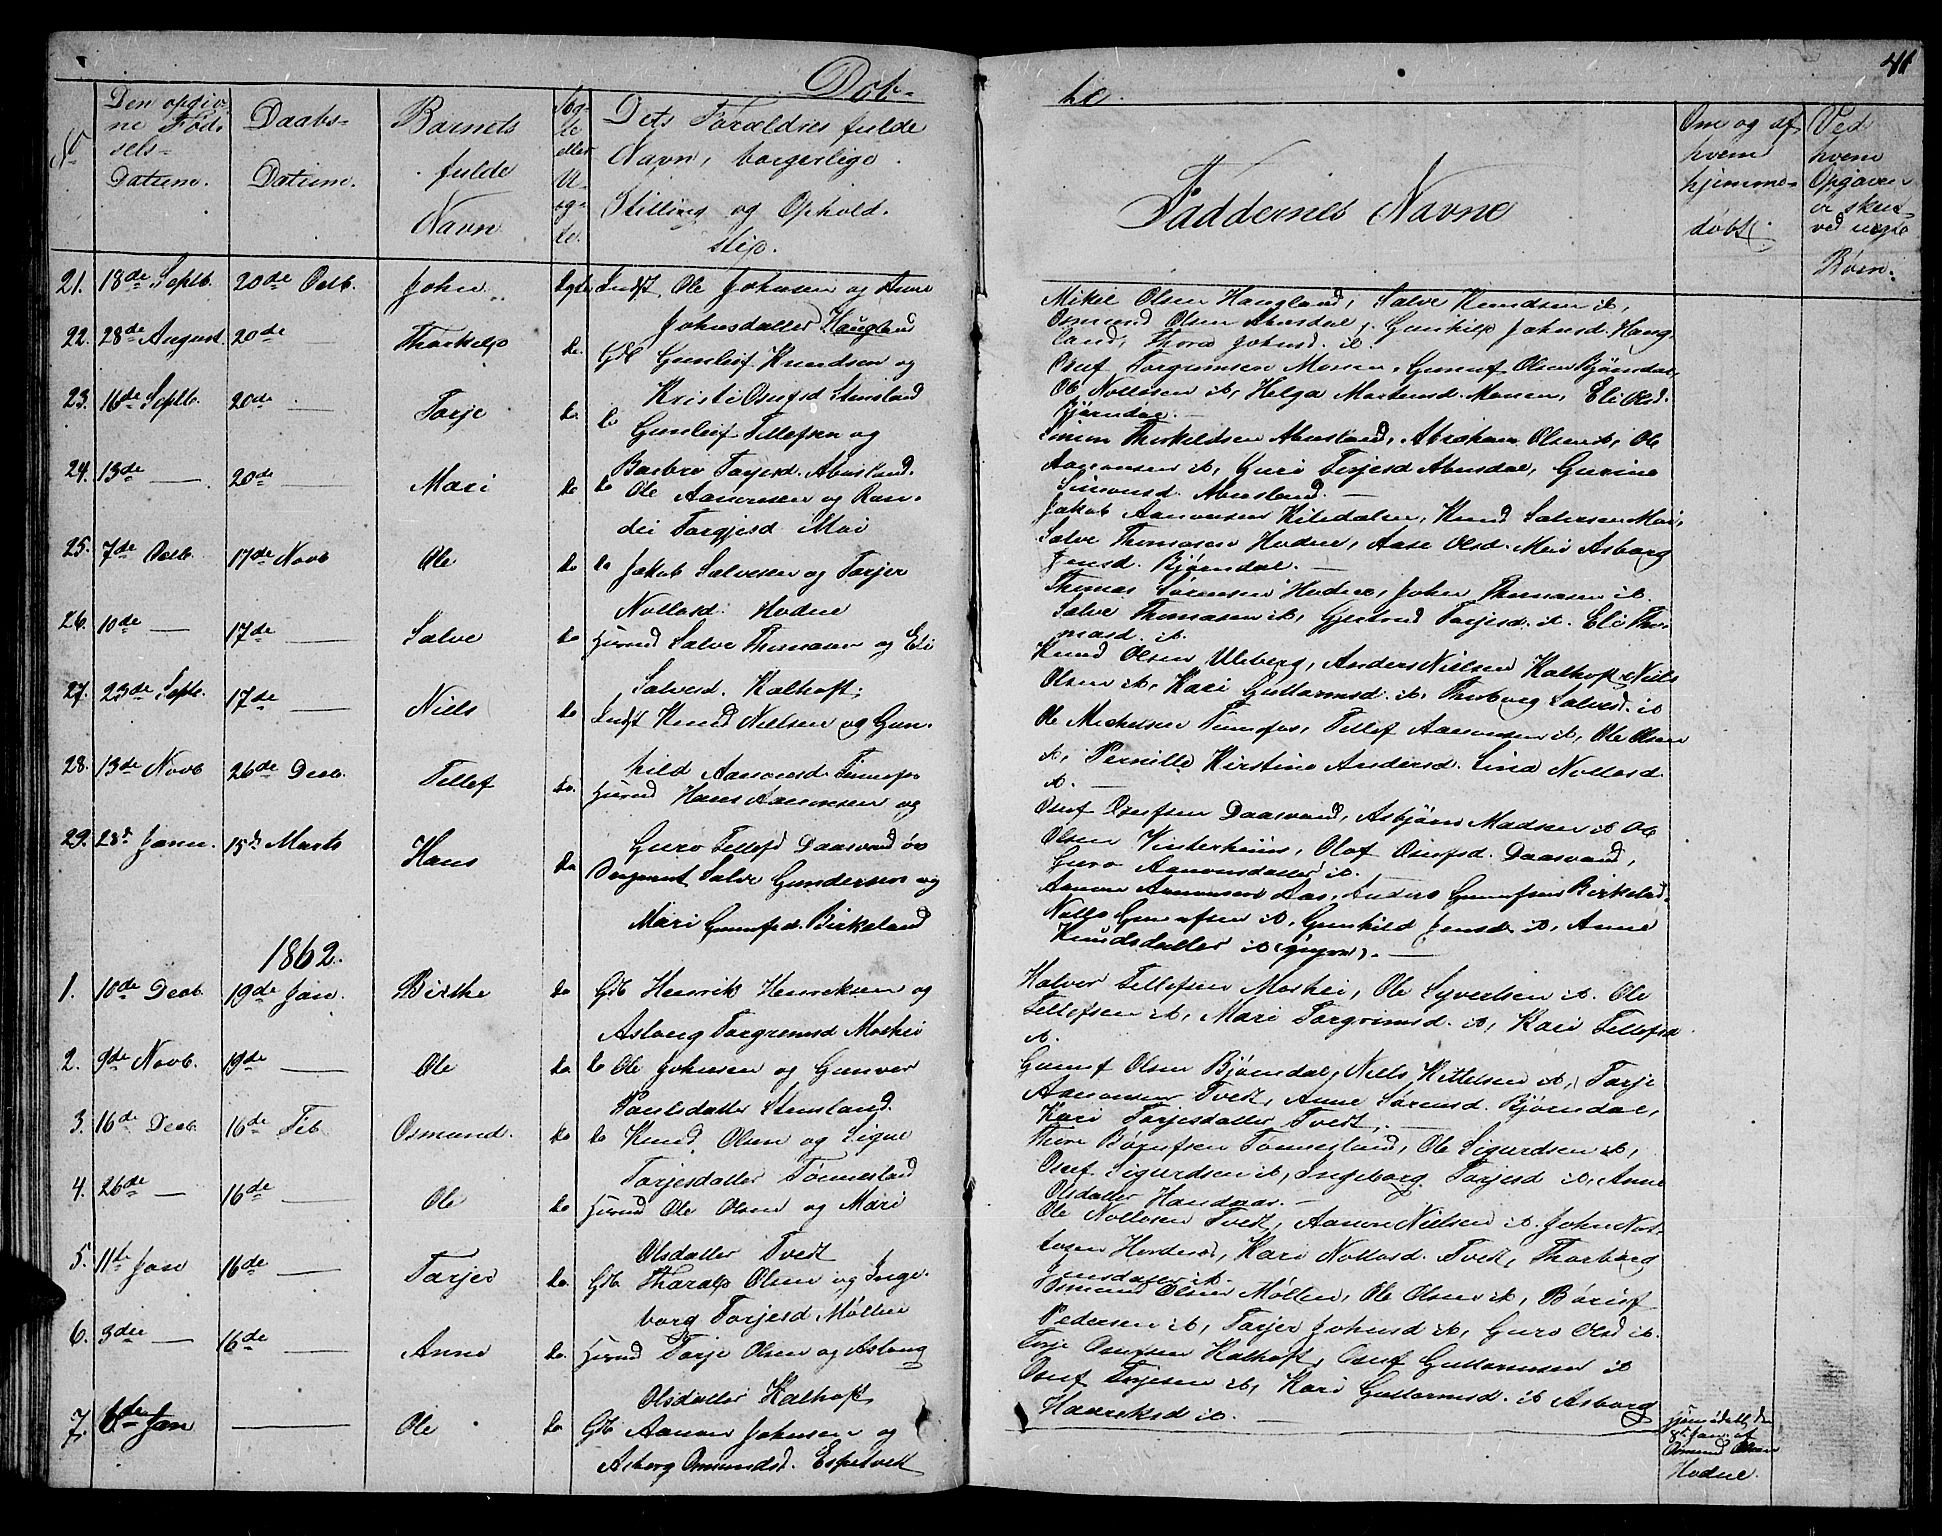 Døb-
te.
41
No
Den opgiv
ne Fød-
sels-
Datum.
Daabs-
Datum.
Barnets
fulde
Navn
Æg-
te
eller
U-
æg-
te.
Dets Forældres fulde
Navn, borgerlige
Stilling og Ophold.
sted.
Faddernes Navne
Om og af
hvem
hjemme-
døbt.
Ved
hvem
Opgaven
er skre-
ved uægte
Børn.
21. 18de Septb. 20de Octb. John Ægte Indst Ole Johnsen og Anne
Johnsdatter Haugland
Mikel Olsen Haugland, Salve Knudsen ib,
Osmund Olsen Abusdal, Gunhild Johnsd. Haug
land, Thora Johnsd. ib
22. 28de August 20de — Thorkeld do. Gbr Gunleif Knudsen og
Kristi Osufsd Stensland
Osuf Torgrimsen Moseen, Gunuf Olsen Bjørndal,
Ole Nottosen ib, Helga Mortensd. Monen, Eli Olsd.
Bjørndal. —
23. 16de Septb. 20de — Torje do. do Gunleif Tellefsen og
Barbro Torjesd. Abusland.
Simon Thorkildsen Abusland, Abraham Olsen ib, Ole
Aanonsen ib, Guri Torjesd Abusdal, Gurine
Simonsd. Abusland. —
24. 13de — 20de — Mari do do Ole Aanonsen og Ran-
dei Torgjesd Moi
Jakob Aanonsen Kiledalen, Knud Salvesen Moi,
Salve Thomasen Hodne, Aase Olsd. Moi Asborg
Jensd. Bjørndal. —
25. 7de Octb. 17de Novb Ole do do Jakob Salvesen og Torjer
Nottosd. Hodne
Thomas Sørensen Hodne, John Thomasen ib.
Salve Thomasen ib, Gjertrud Torjesd. ib. Eli Tho-
masd. ib.
26. 10de — 17de — Salve do Huusmd Salve Thomasen og Eli
Salvesd. Kalhoft.
Knud Olsen Uleberg, Anders Nielsen Kalhoft, Niels
Olsen ib, Kari Guttormsd. ib, Thorborg Salvesd. ib
27. 23de Septb. 17de — Niels do Indst Knud Nielsen og Gun-
hild Aanonsd.
Ole Mickelsen, Tellef Aanonsen ib, Ole Olsen
ib, Pernille Kirstine Andersd. Sina Nottosd.
ib. —
28. 13de Novb 26de Decb. Tellef do. Huusmd Hans Aanonsen og
Guro Tellefsd Daasvand
Osuf Osufsen Daasvand, Asbjørn Madsen ib Ole
Olsen Vinterhuus, Olaf Osufsd. Daasvand,
Guro Aanonsdatter ib.
29. 28de Janu. 15de Marts Hans do Sergeant Salve Gundersen og
Mari Gunufsd. Birkeland
Aanon Aanonsen Aas, Anders Gunufsen Birkeland,
Notto Gunufsen ib, Gunhild Jensd. ib, Anne
Knudsdatter ib. —
1862.
1. 10de Decb. 19de Jan. Birthe do Gbr Henrik Henriksen og
Aslaug Torgrimsd Moshei
Halvor Tellefsen Moshei, Ole Syvertsen ib. Ole
Tellefsen ib, Mari Torgrimsd. ib, Kari Tellefsd
ib.
2. 9de Novb. 19de — Ole do do Ole Johnsen og Gunvor
Poulsdatter Stensland.
Gunuf Olsen Bjørndal, Niels Kittelsen ib, Torje
Aanonsen Tvedt, Anne Sørensd. Bjørndal,
Kari Torjesdatter Tvedt. —
3. 16de Decb. 16de Feb Osmund. do do Knud Olsen og Signe
Torjesdatter Tønnesland
Thore Børufsen Tønnesland, Ole Sigurdsen ib,
Osuf Sigurdsen ib, Ingeborg Torjesd ib, Anne
Olsdatter Handaas. —
4. 26de — 16de — Ole do Huusmd Ole Olsen og Mari
Olsdatter Tvedt
Ole Nottosen Tvedt, Aanon Nielsen ib. John Not-
tosen Hordnes, Kari Nottosd. Tvedt, Thorborg
Jensdatter ib.
5. 11te Jan 16de — Torjer do. Gbr Tharald Olsen og Inge-
borg Torjesd Møllen
Osmund Olsen Møllen, Ole Olsen ib, Børuf
Pedersen ib, Torjer Johnsd ib, Guro Olsd ib.
6. 3die — 16de — Anne do. Huusmd Torje Olsen og Aslaug
Olsdatter Kalhoft
Torje Osufsen Kalhoft, Osuf Guttormsen ib
Osuf Torjesen ib, Kari Guttormsd. ib Asborg
Haareksd ib. —
7. 6de Jan — Ole do Gbr Aanon Johnsen og
Asborg Osmundsd. Espetvedt
Hjemmedøbt den
8de Jan. af
Osmund Olsen
Hodne.